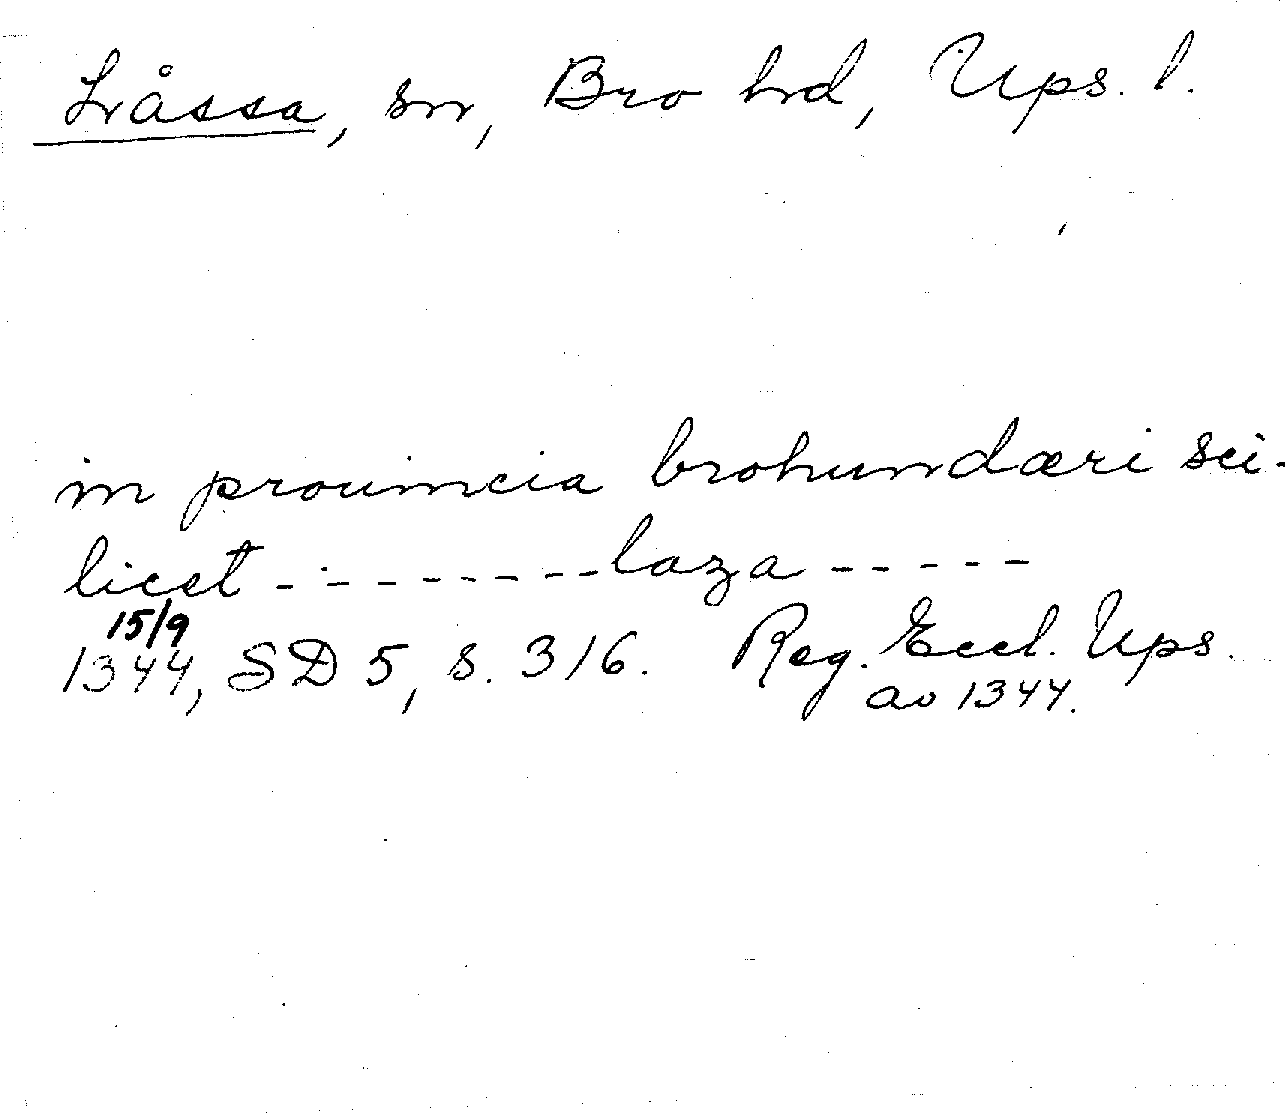 Låssa, sn, Bro hd, Ups. l.
in prouincia brohundæri sci-
licet - - - - - - - - laza - - - - -
15/9
1344, SD 5, s. 316. Reg. Eccl. Ups.
av 1344.